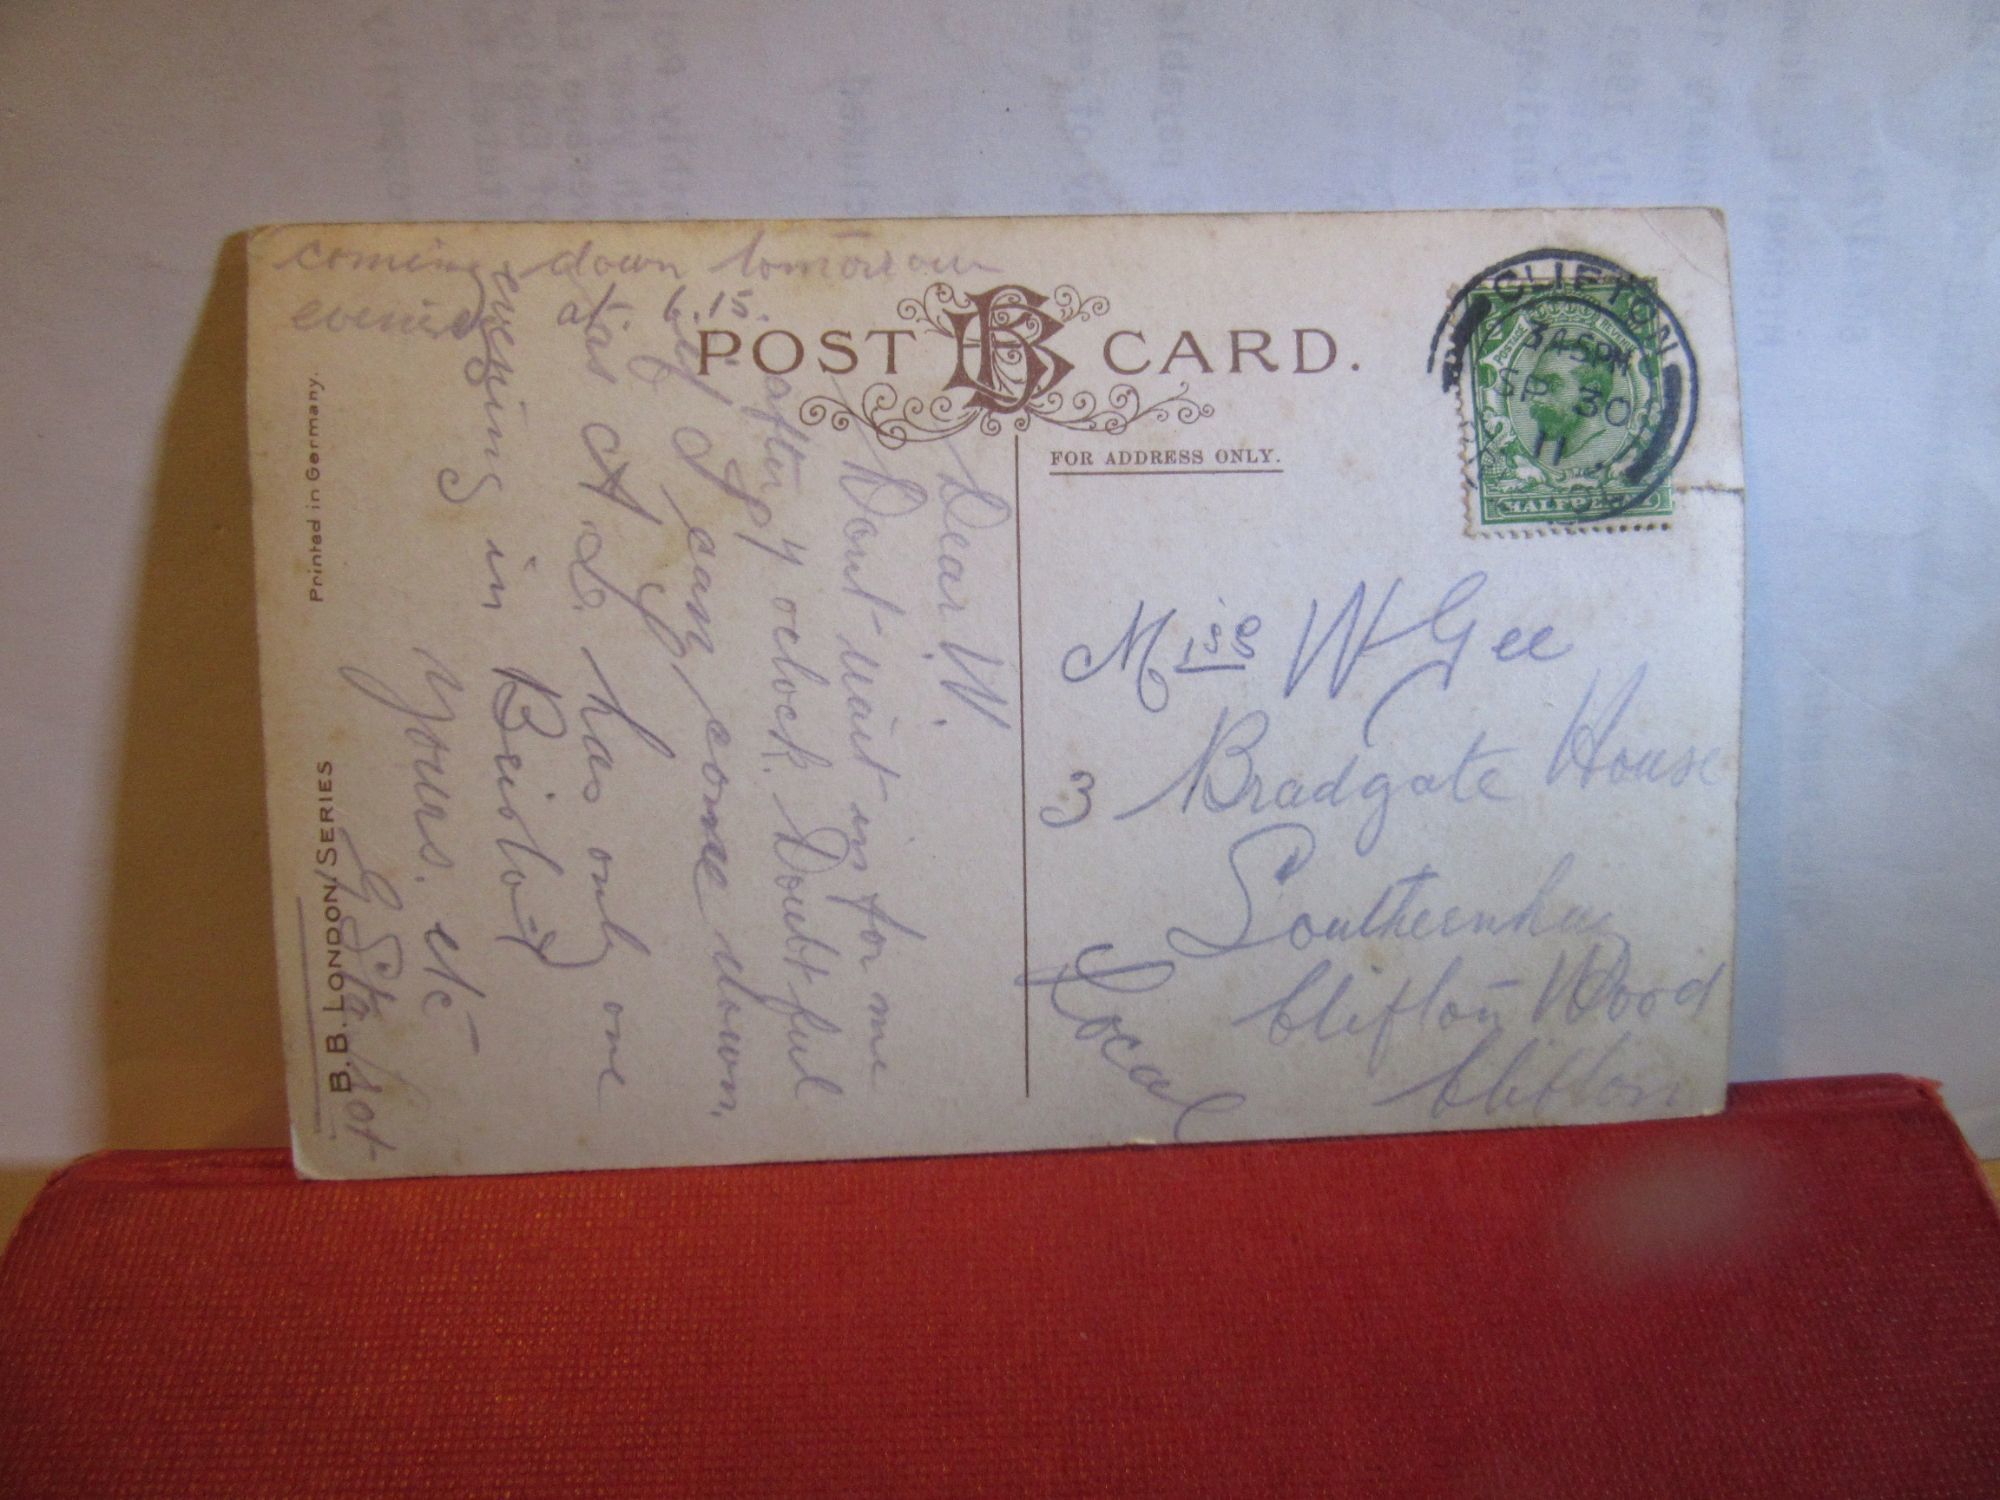 coming down tomorrow
evening at 6.15.
POST CARD.
FOR ADDRESS ONLY.
CLIFTON
3 45PM
SP 30
11
POSTAGE REVENUE
HALFPENNY
Miss W Gee
3 Bradgate House
Southernhay
Clifton Wood
Clifton
Local
Dear W.
Dont wait in for me
after 7 oclock. Doubtful
if I can come down,
as A L has only one
evening in Bristol
Yours. etc
G
Printed in Germany.
B.B. LONDON/SERIES